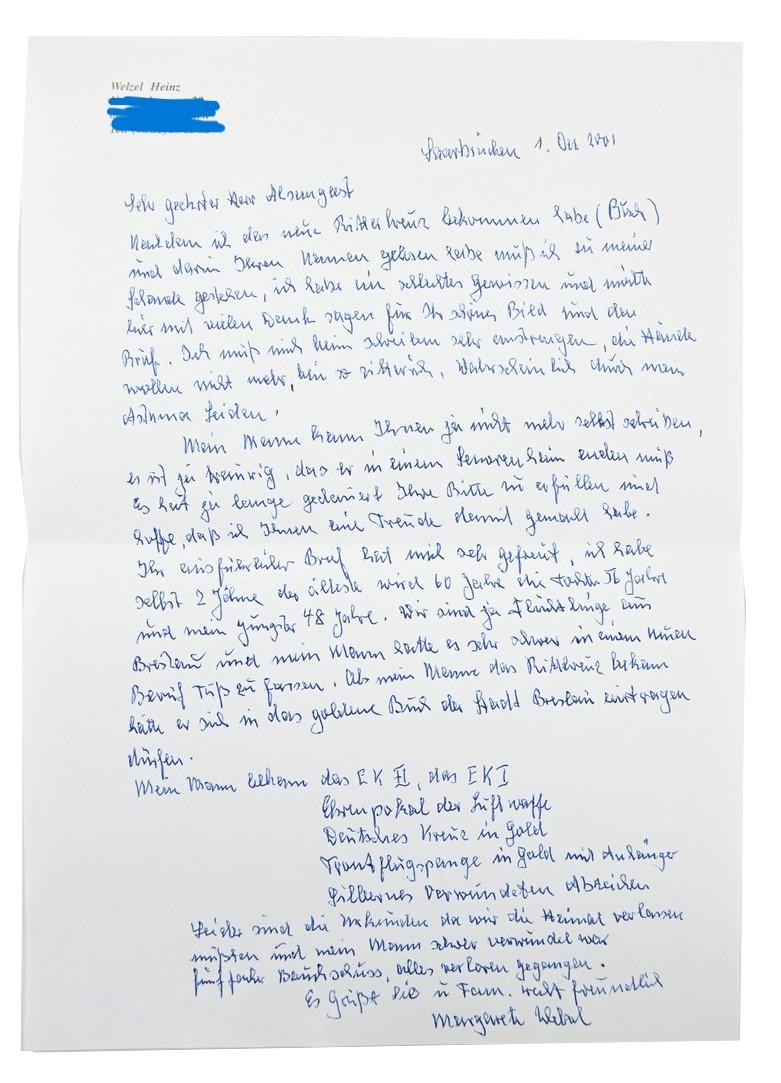 Welzel Heinz
Saarbrücken 1. Dez 2001
Sehr geehrter Herr
Nachdem ich das neue Ritterkreuz bekommen habe (Buch)
und darin Ihren Namen gelesen habe muß ich zu meiner
Schande gestehen, ich habe ein schlechtes Gewissen und möchte
hier mit vielen Dank sagen für Ihr schönes Bild und den
Brief. Ich muß mich beim schreiben sehr anstrengen, die Hände
wollen nicht mehr, bin so zittrich, Wahrscheinlich durch mein
Astma Leiden.
Mein Mann kann Ihnen ja nicht mehr selbst schreiben,
es ist zu traurig, das er in einem Senorenheim enden muß
Es hat zu lange gedauert Ihre Bitte zu erfüllen und
hoffe, daß ich Ihnen eine Freude damit gemacht habe.
Ihr ausführlicher Brief hat mich sehr gefreut, ich habe
selbst 2 Söhne der älteste wird 60 Jahre die Tochter 56 Jahre
und mein Jüngster 48 Jahre. Wir sind ja Flüchtlinge aus
Breslau und mein Mann hatte es sehr schwer in einem neuen
Beruf Fuß zu fassen. Als mein Mann das Ritterkreuz bekam
hatte er sich in das goldene Buch der Stadt Breslau eintragen
dürfen.
Mein Mann bekam das EK II, das EK I
Ehrenpokal der Luftwaffe
Deutsches Kreuz in Gold
Frontflugspange in Gold mit Anhänger
Silbernes Verwundeten Abzeichen
Leider sind die Urkunden da wir die Heimat verlassen
mußten und mein Mann schwer verwundet war
fünffacher Bauchschuss, alles verloren gegangen.
Es Grüßt Sie u Fam. recht freundlich
Margarete Welzel